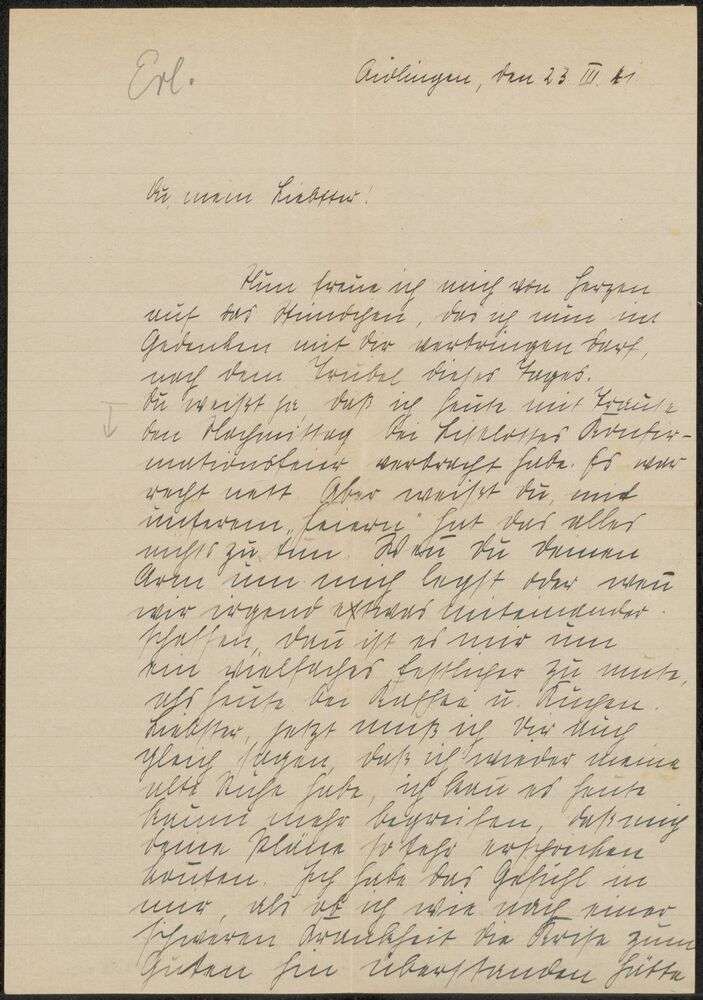 Erl.
Aidlingen, den 23. III. 41.
Du, mein Liebster!
Nun freue ich mich von Herzen
auf das Stündchen, das ich nun im
Gedenken mit Dir verbringen darf,
nach dem Trubel dieses Tages.
Du weißt ja, daß ich heute mit Traute
den Nachmittag bei Liselottes Konfir-
mationsfeier verbracht habe. Es war
recht nett. Aber weißt Du, mit
unserem „feiern" hat das alles
nichts zu tun. Wenn Du Deinen
Arm um mich legst oder wenn
wir irgend etwas miteinander
schaffen, dann ist es mir um
ein vielfaches festlicher zu mute,
als heute bei Kaffee u. Kuchen.
Liebster, jetzt muß ich Dir auch
gleich sagen, daß ich wieder meine
alte Ruhe habe, ich kann es heute
kaum mehr begreifen, daß mich
deine Pläne so sehr erschrecken
konnten. Ich habe das Gefühl in
mir, als ob ich wie nach einer
schweren Krankheit die Krise zum
Guten hin überstanden hätte